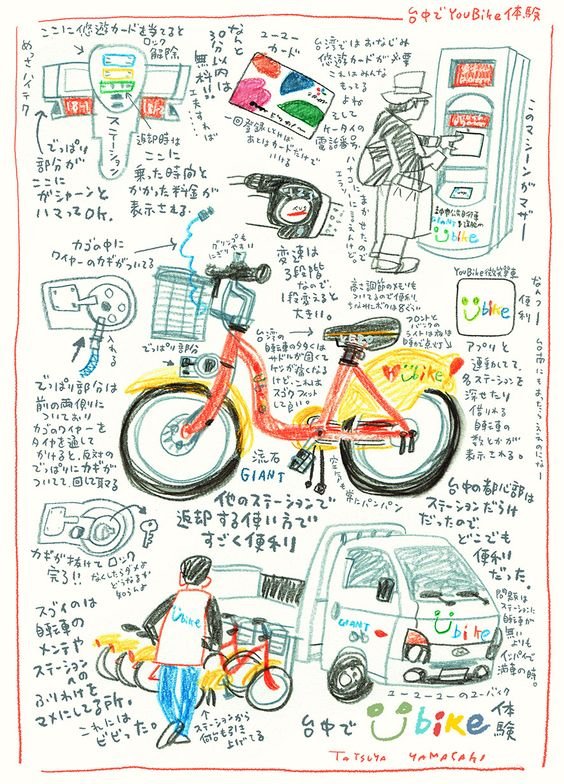 台中でYouBike体験
ここに悠遊カードを当てると
ロック
解除
めっさハイテク
ステーション
でっぱり
部分が
ここに
がシャーンと
ハマってOK.
返却時は
ここに
乗った時間と
かかった料金が
表示される.
なんと
30分以内は
無料!!
工夫すれば
ユーユー
カード
一回登録しとけば
あとはカードだけで
いける
台湾ではおなじみ
悠遊カードが必要
これはみんな
もってる
よね
そして
ケータイの
電話番号.
このマシーンがマザー
GIANT
Ubike
カゴの中に
ワイヤーのカギがついてる
グリップも
にぎりやすい
変速は
3段階
なので
1段変えると
大きい.
高さ調節のメモリも
ついてるので便利.
ちなみにボクは8ぐらい
フロントと
バックの
ライトは
点灯
YouBike微笑單車
Ubike
便利
入れる
でっぱり部分
でっぱり部分は
前の両側に
ついており
カゴのワイヤーを
タイヤを通して
かけると,反対の
でっぱりにカギが
ついてて,回して取る
台湾の
自転車の多くは
サドルが固くて
ケツが痛くなる
けど,これは
スゴクフィット
して良い.
Ubike
アプリと
連動してて,
名ステーション
を
探せたり
借りれる
自転車の
数とかが
表示される.
流石
GIANT
空気も常にパンパン
他のステーションで
返却する使い方で
すごく便利
台中の都心部は
ステーションだらけ
だったので,
どこでも
便利
だった.
問題は
ステーションに
自転車が
無い
よりも
満車の時.
カギが抜けてロック
完了!!
なくしたらダメよ
どうなるか
知らんよ
スゴイのは
自転車の
メンテや
ステーションへの
ふりわけを
マメにしてる所.
これには
ビビった.
Ubike
GIANT
Ubike
↑
ステーションから
何台も引き
上げてる
ユーユーユーのユーバイク
台中で Ubike 体験
TATSUYA YAMASAKI